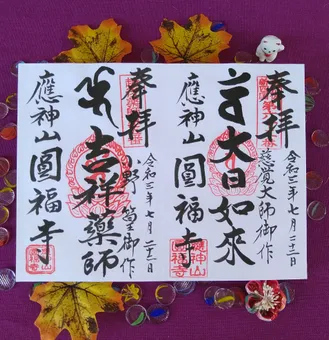 奉拝
慈覚大師御作
令和三年七月二十二日
大日如来
應神山圓福寺
奉拝
小野篁御作
令和三年七月二十二日
吉祥薬師
應神山圓福寺